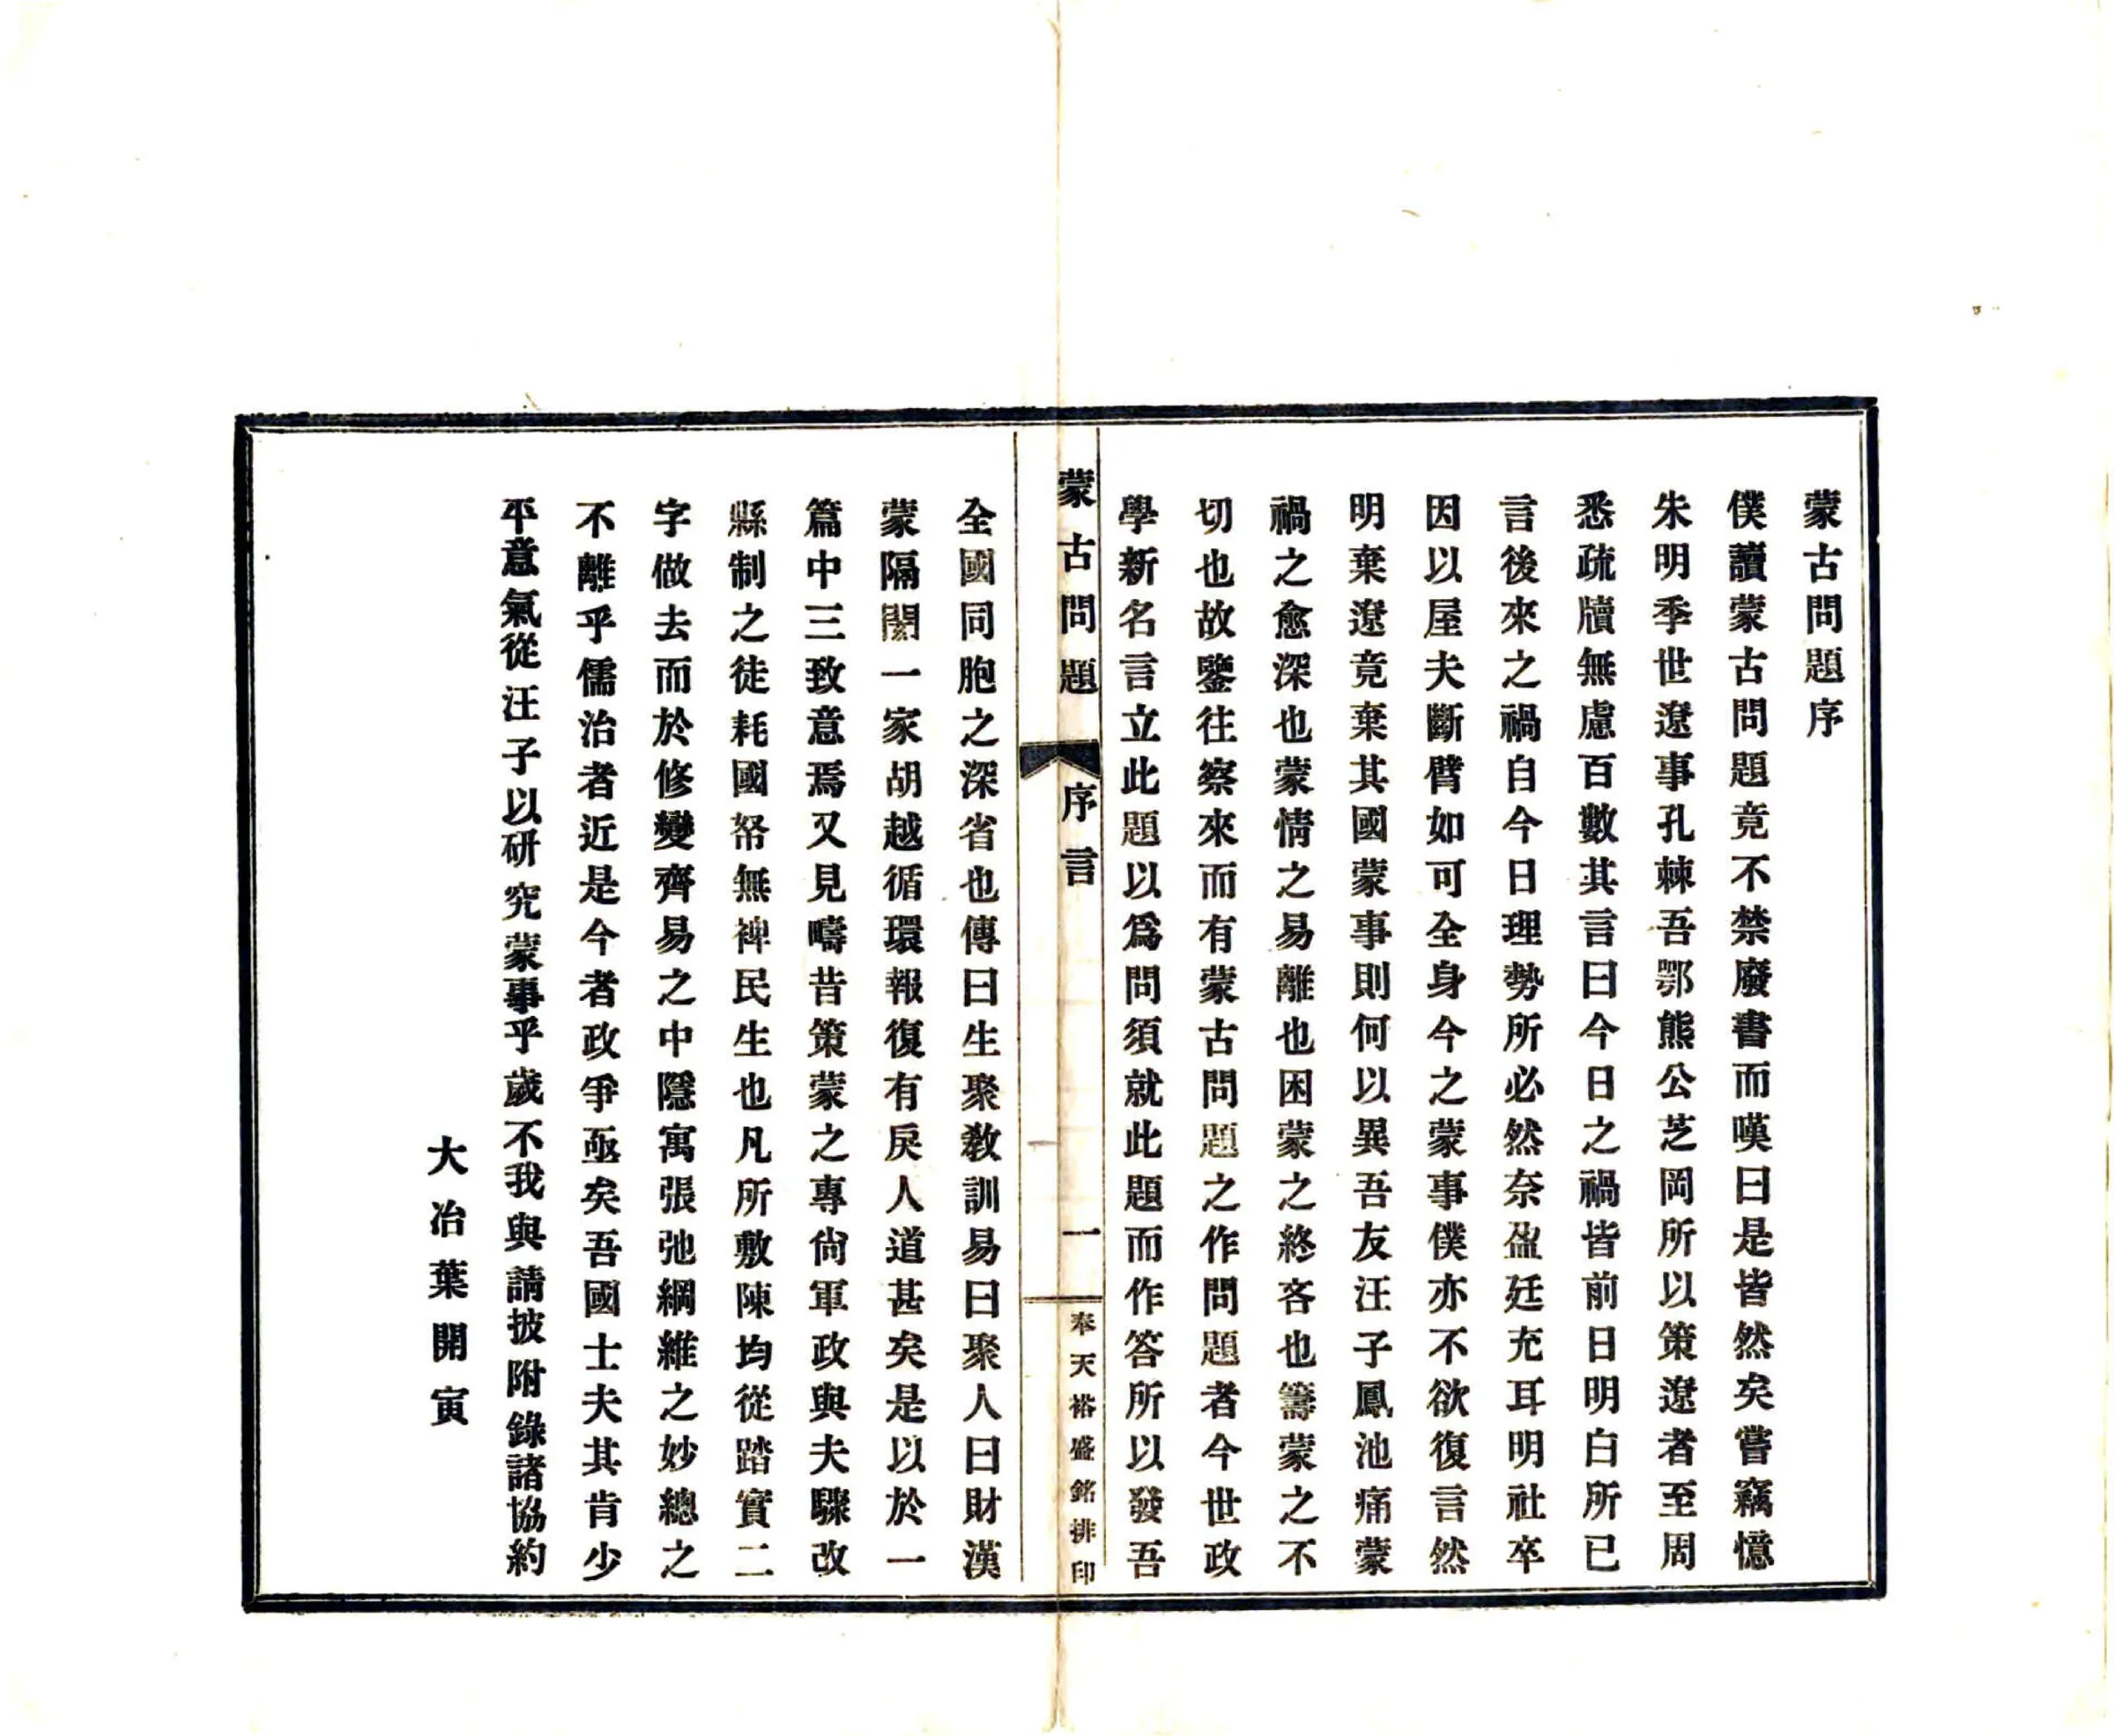 蒙古問題序
僕讀蒙古問題竟不禁廢書而嘆曰是皆然矣嘗竊憶
朱明季世遼事孔棘吾鄂熊公芝岡所以策遼者至周
悉疏牘無慮百數其言曰今日之禍皆前日明白所已
言後來之禍自今日理勢所必然奈盈廷充耳明社卒
因以屋夫斷臂如可全身今之蒙事僕亦不欲復言然
明棄遼竟棄其國蒙事則何以異吾友汪子鳳池痛蒙
禍之愈深也蒙情之易離也困蒙之終吝也籌蒙之不
切也故鑒往察來而有蒙古問題之作問題者今世政
學新名言立此題以爲問須就此題而作答所以發吾
蒙古問題 序言 一 奉天裕盛銘排印
全國同胞之深省也傳曰生聚教訓易曰聚人曰財漢
蒙隔閡一家胡越循環報復有戾人道甚矣是以於一
篇中三致意焉又見疇昔策蒙之專尙軍政與夫驟改
縣制之徒耗國帑無裨民生也凡所敷陳均從踏實二
字做去而於修變齊易之中隱寓張弛綱維之妙總之
不離乎儒治者近是今者政爭亟矣吾國士夫其肯少
平意氣從汪子以研究蒙事乎歲不我與請披附錄諸協約
大冶葉開寅